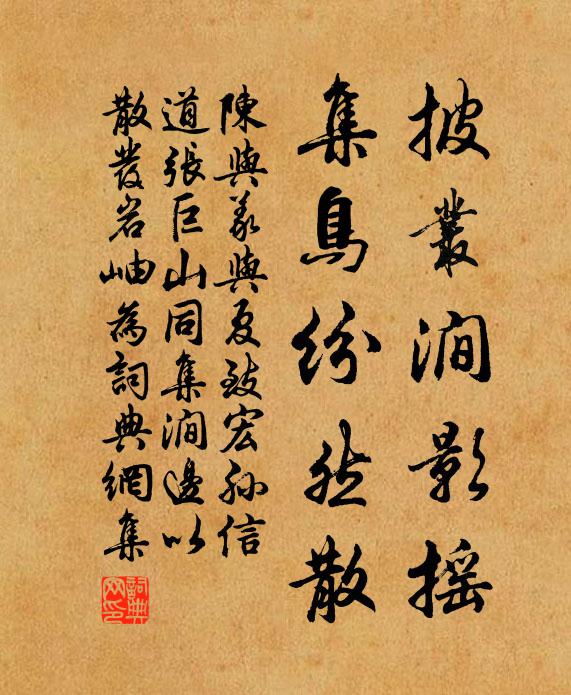 披叢澗影摇
集鳥纷然散
陳與義與夏致宏孫信
道張巨山同集澗邊以
散髮岩岫為詞典網集
詞典网印